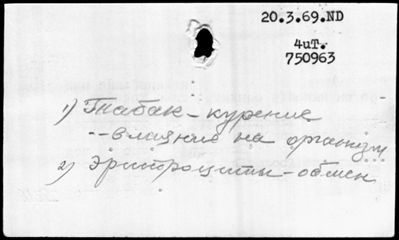 20.3.69.ND
4иТ.
750963
1) Табак-курение
--влияние на организм
2) Эритроциты-обмен